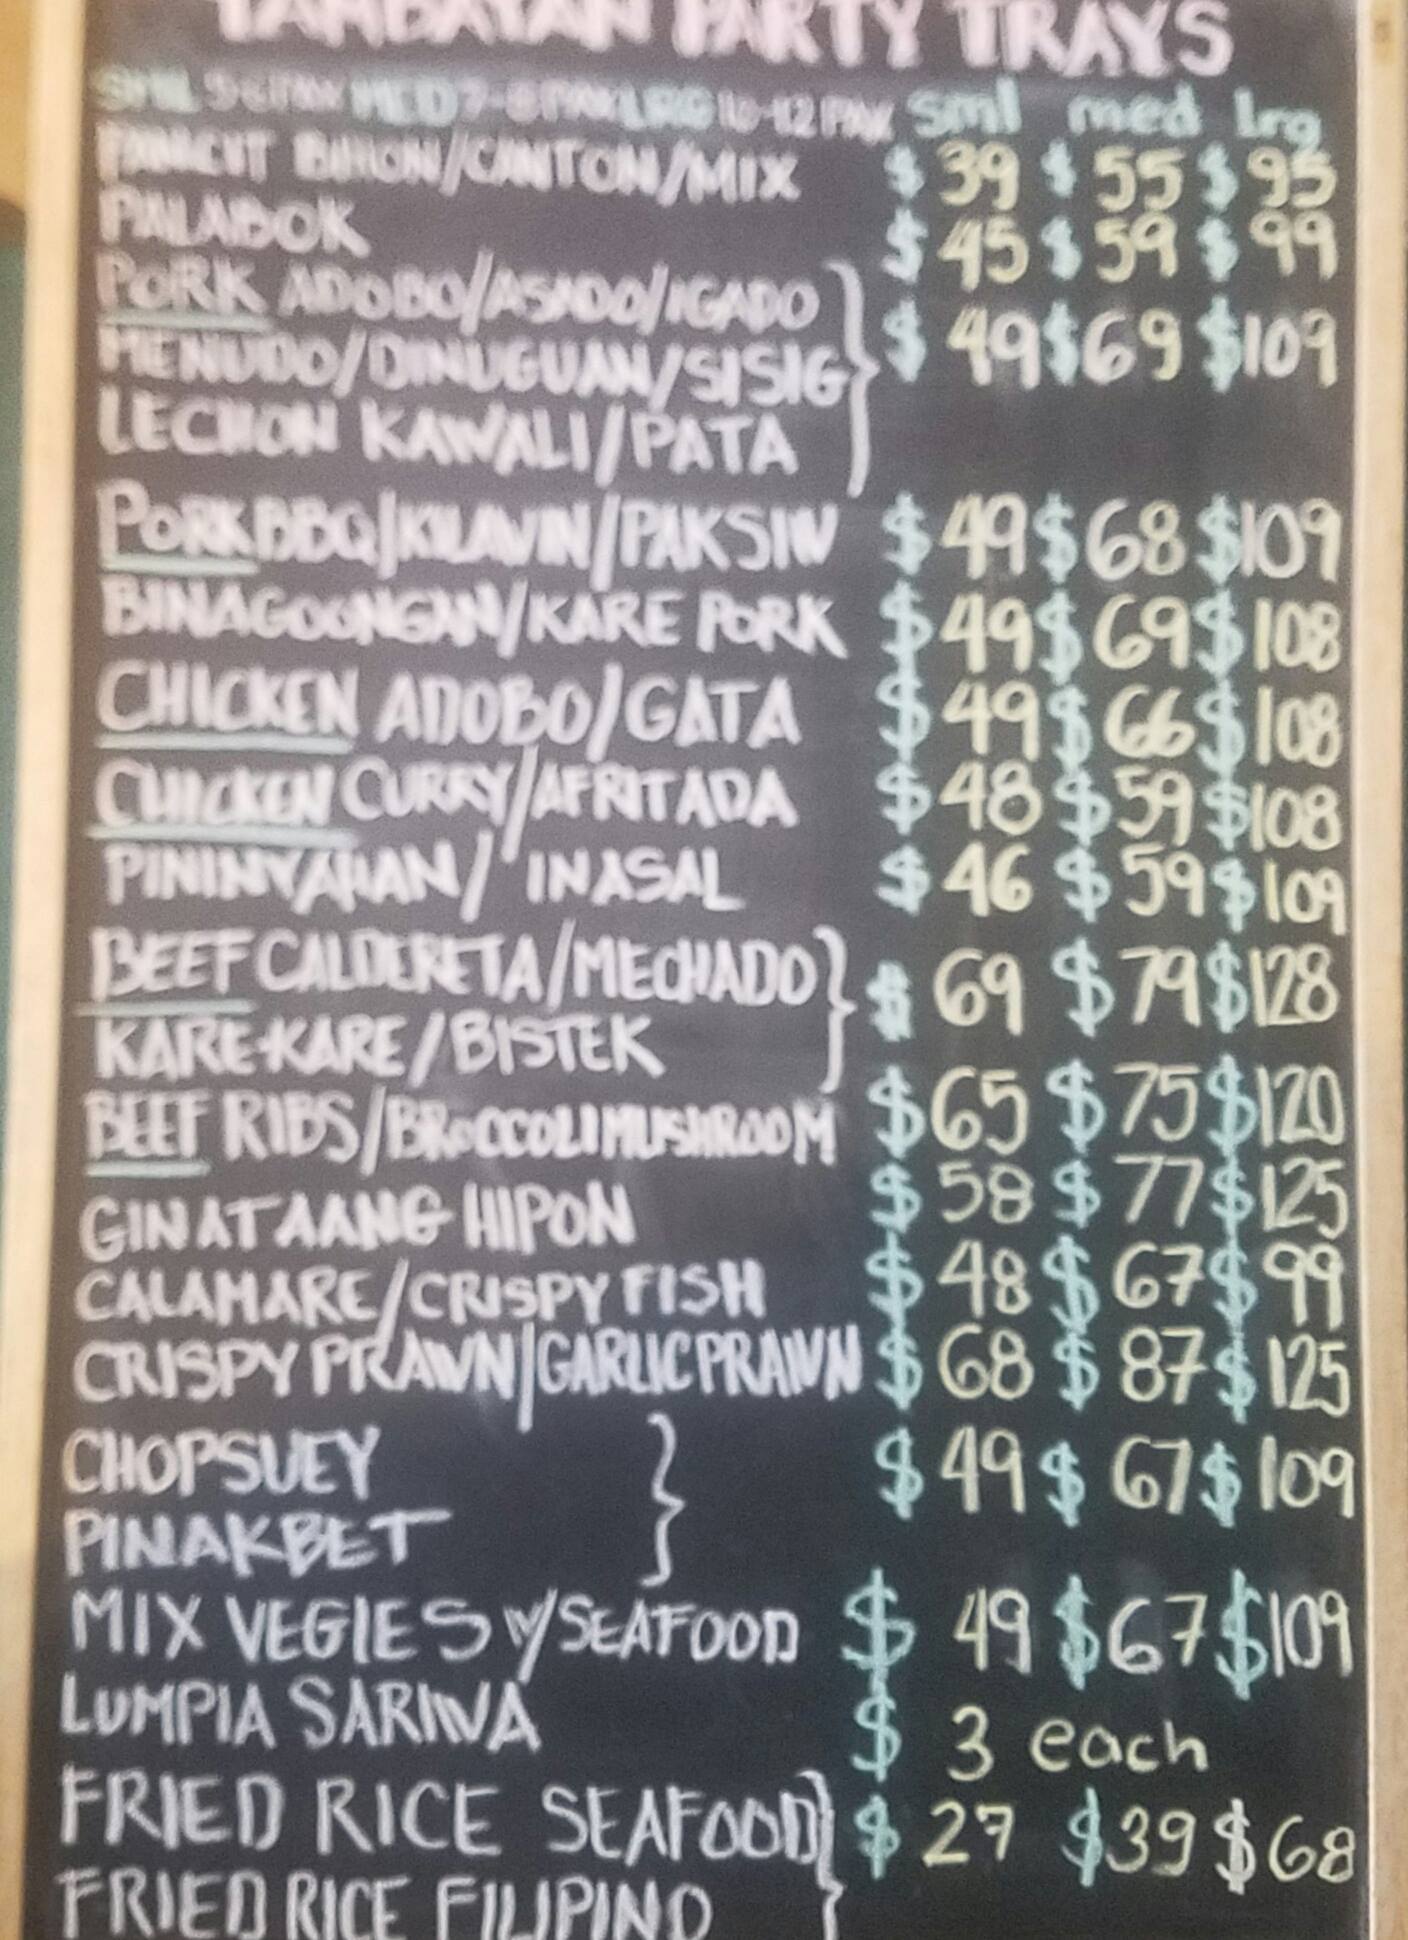 TAMBAYAN PARTY TRAYS
SML 5-6 PAX MED 7-8 PAX LRG 10-12 PAX sml med lrg
PANCIT BIHON/CANTON/MIX $ 39 $ 55 $ 95
PALABOK $ 45 $ 59 $ 99
PORK ADOBO/ASADO/IGADO
MENUDO/DINUGUAN/SISIG } $ 49 $ 69 $ 109
LECHON KAWALI/PATA
PORK BBQ/KILAWIN/PAKSIW $ 49 $ 68 $ 109
BINAGOONGAN/KARE PORK $ 49 $ 69 $ 108
CHICKEN ADOBO/GATA $ 49 $ 66 $ 108
CHICKEN CURRY/AFRITADA $ 48 $ 59 $ 108
PININYAHAN/ INASAL $ 46 $ 59 $ 109
BEEF CALDERETA/MECHADO } $ 69 $ 79 $ 128
KARE-KARE/BISTEK
BEEF RIBS/BROCCOLI MUSHROOM $ 65 $ 75 $ 120
GINATAANG HIPON $ 58 $ 77 $ 125
CALAMARE/CRISPY FISH $ 48 $ 67 $ 99
CRISPY PRAWN/GARLIC PRAWN $ 68 $ 87 $ 125
CHOPSUEY } $ 49 $ 67 $ 109
PINAKBET
MIX VEGIES W/SEAFOOD $ 49 $ 67 $ 109
LUMPIA SARIWA $ 3 each
FRIED RICE SEAFOOD } $ 27 $ 39 $ 68
FRIED RICE FILIPINO